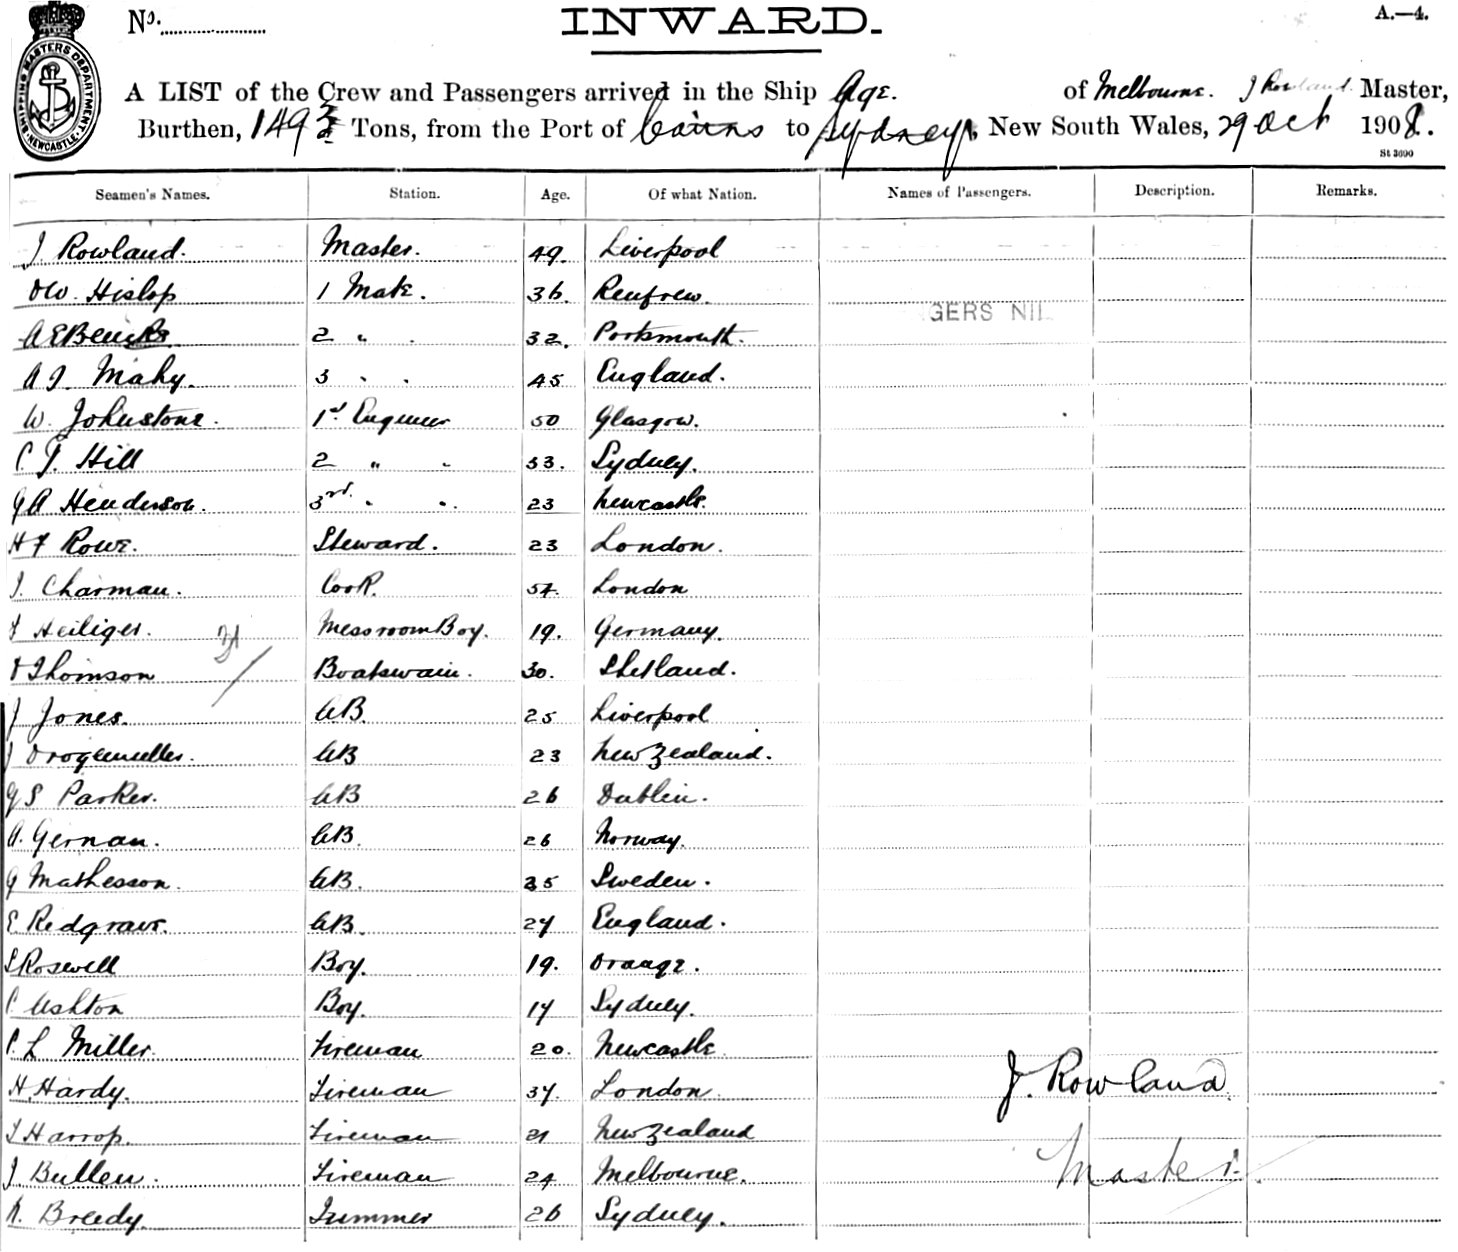 No. INWARD. A.—4.
SHIPPING MASTERS DEPARTMENT NEWCASTLE
A LIST of the Crew and Passengers arrived in the Ship Age. of Melbourne. J Rowland. Master,
Burthen, 1493 Tons, from the Port of Cairns to Sydney, New South Wales, 29 Oct 1908.
St 3690
Seamen's Names. Station. Age. Of what Nation. Names of Passengers. Description. Remarks.
J. Rowland. Master. 49. Liverpool
Hislop 1 Mate. 36. Renfrew.
GERS NIL
A E 2 " 32. Portsmouth.
A J. Mahy. 3 " 45 England.
W. Johnstone. 1st Engineer 50 Glasgow.
C. J. Hill 2 " " 33. Sydney.
G A Henderson. 3rd. " " 23 Newcastle.
H F Rowe. Steward. 23 London.
J. Charman. Cook. 57. London
F Heiliger. Messroom Boy. 19. Germany.
Thomson Boatswain. 30. Shetland.
J Jones. AB. 25 Liverpool
J Drogemuller. AB 23 New Zealand.
G S Parker. AB 26 Dublin.
A. Gernan. AB. 26 Norway.
G Mathesson. AB. 35 Sweden.
E Redgrave. AB. 27 England.
S Rosewell Boy. 19. Orange.
C Ashton Boy. 17 Sydney.
C. L Miller. Fireman 20. Newcastle
H. Hardy. Fireman 37. London.
J. Rowland.
T Harrop. Fireman 21 New Zealand
J. Bullen. Fireman 24 Melbourne.
Master.
N. Breedy. Trimmer 26 Sydney.